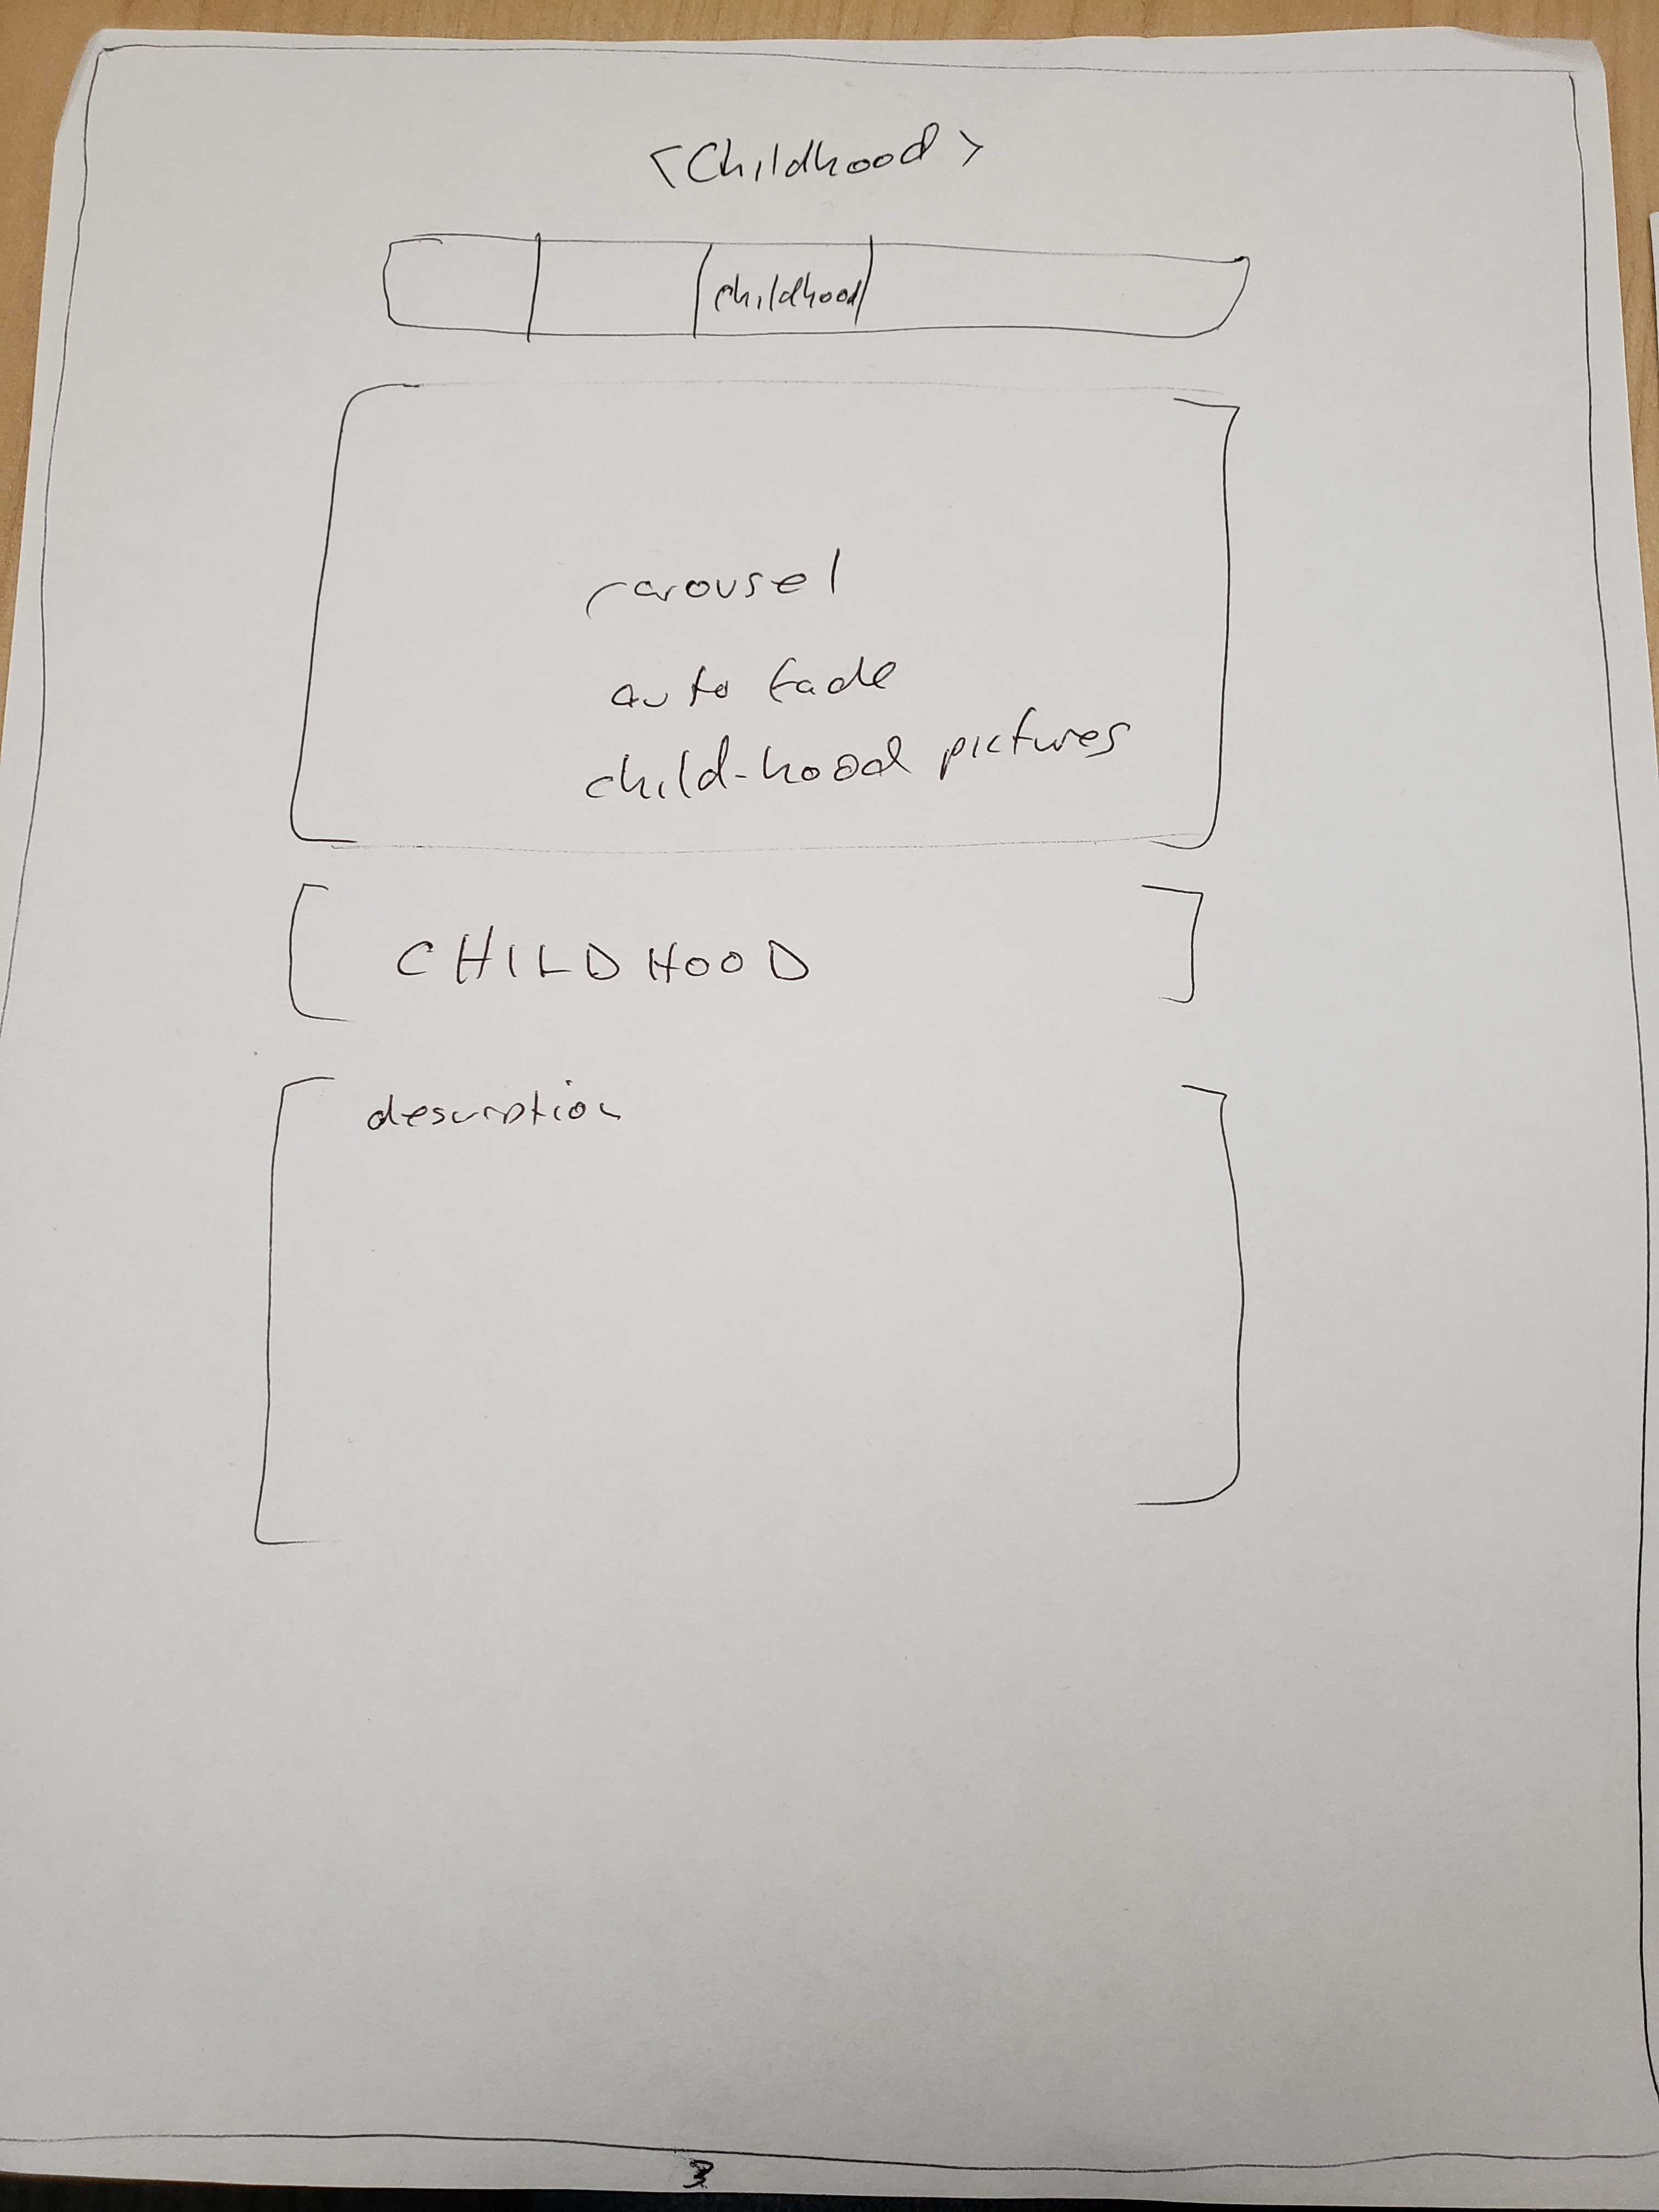 <Childhood>
childhood
carousel
auto fade
child-hood pictures
CHILDHOOD
description
3